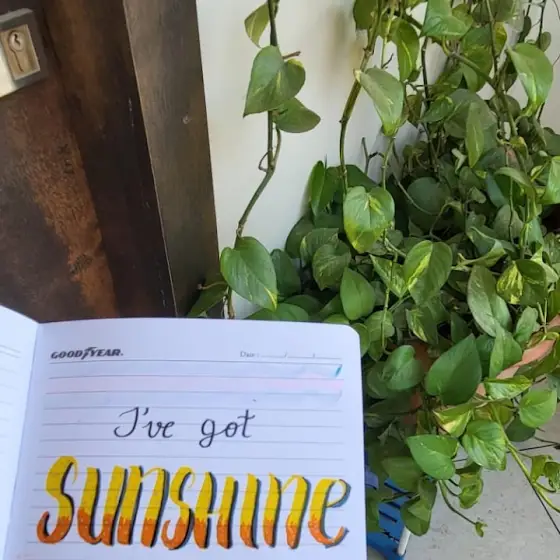 GOODYEAR.
Date:___/___/___
I've got
SUNSHINE